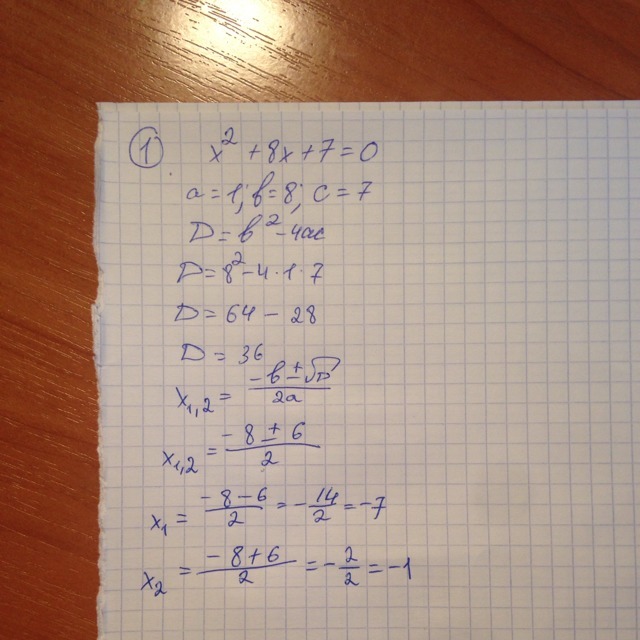 ① x² + 8x + 7 = 0
a = 1; b = 8; c = 7
D = b² - 4ac
D = 8² - 4 · 1 · 7
D = 64 - 28
D = 36
x₁,₂ = (-b ± √D)/2a
x₁,₂ = (-8 ± 6)/2
x₁ = (-8 - 6)/2 = -14/2 = -7
x₂ = (-8 + 6)/2 = -2/2 = -1